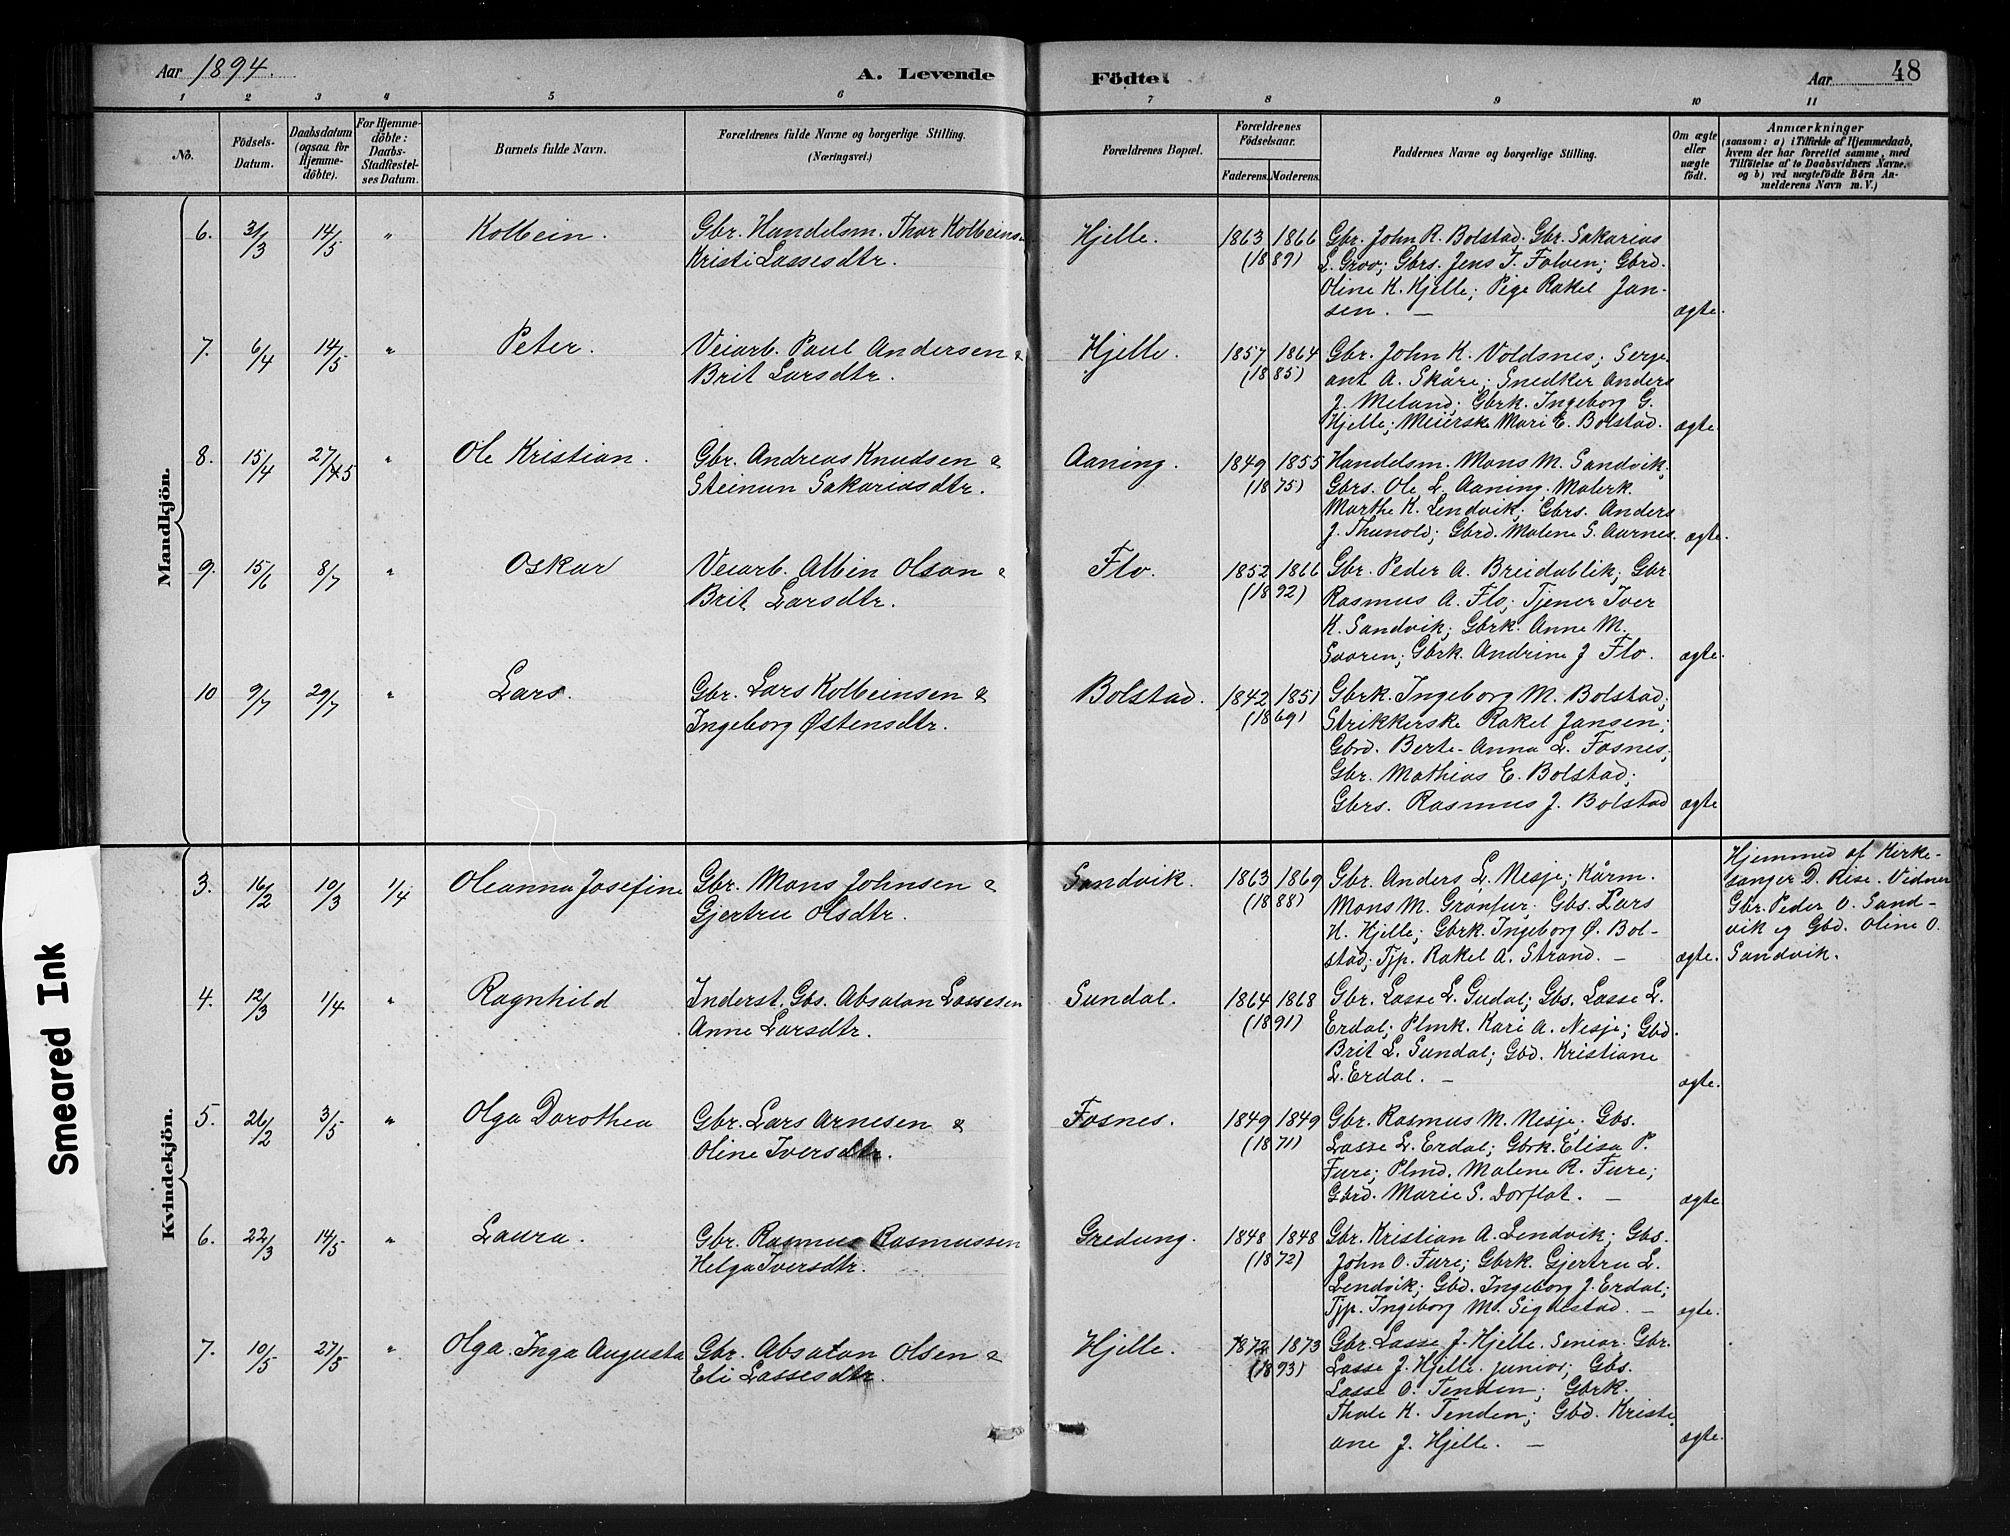 Aar 1894.
A. Levende Födte.
Aar 48
1 2 3 4 5 6 7 8 9 10 11
No.
Födsels-Datum.
Daabsdatum (ogsaa for Hjemme-döbte).
For Hjemme-döbte: Daabs-Stadfæstel-ses Datum.
Barnets fulde Navn.
Forældrenes fulde Navne og borgerlige Stilling. (Næringsvei.)
Forældrenes Bopæl.
Forældrenes Födselsaar.
Faderens. Moderens.
Faddernes Navne og borgerlige Stilling.
Om ægte eller uægte födt.
Anmærkninger
(saasom: a) i Tilfælde af Hjemmedaab, hvem der har forrettet samme, med Tilföielse af to Daabsvidners Navne, og b) ved uægtefödte Börn An-melderens Navn m. V.)
Mandkjön.
6. 31/3 14/5 " Kolbein. Gbr. Handelsm. Thor Kolbeins. Hjelle. 1863 1866 Gbr. John R. Bolstad; Gbr. Sakarias
Kristi Lassesdtr. (1889) L. Grov; Gbrs. Jens T. Folven; Gbrd.
Oline K. Hjelle; Pige Rakel Jan-
sen. — ægte.
7. 6/4 14/5 " Peter. Veiarb. Paul Andersen & Hjelle. 1857 1864 Gbr. John K. Voldsnes; Serje-
Brit Larsdtr. (1885) ant A. Skåre; Snedker Anders
J. Meland; Gbrk. Ingeborg G.
Hjelle; Meierske Mari E. Bolstad. ægte.
8. 15/4 27/45 " Ole Kristian. Gbr. Andreas Knudsen & Aaning. 1849 1855 Handelsm. Mons M. Sandvik;
Steinun Sakariasdtr. (1875) Gbrs. Ole L. Aaning; Malerk.
Marthe K. Lendvik; Gbrs. Anders
J. Thunold; Gbrd. Malene S. Aarnes. ægte.
9. 15/6 8/7 " Oskar Veiarb. Albin Olson & Flo. 1852 1866 Gbr. Peder A. Breidablik; Gbr.
Brit Larsdtr. (1892) Rasmus A. Flo; Tjener Iver
K. Sandvik; Gbrk. Anne M.
Svoren; Gbrk. Andrine J Flo. ægte.
10 9/7 29/7 " Lars. Gbr. Lars Kolbeinsen & Bolstad. 1842 1851 Gbrk. Ingeborg M. Bolstad;
Ingeborg Østensdtr. (1869) Strikkerske Rakel Jansen;
Gbrd. Berte-Anna L. Fosnes;
Gbr. Mathias E. Bolstad;
Gbrs. Rasmus J. Bolstad ægte
Kvindekjön.
3. 16/2 10/3 1/4 Oleanna Josefine Gbr. Mons Johnsen & Sandvik. 1863 1869 Gbr. Anders L. Nesje; Kårm. Hjemmed. af Kirke-
Gjertru Olsdtr. (1888) Mons M. Granfur; Gbs. Lars sanger D. Rise. Vidner
N. Hjelle; Gbrk. Ingeborg Ø. Bol- Gbr. Peder O. Sand-
stad; Tjp. Rakel A. Strand. — ægte. vik og Gbd. Oline O.
Sandvik.
4. 12/3 1/4 " Ragnhild Inderst. Gbs. Absalon Lassesen Sundal. 1864 1868 Gbr. Lasse L. Gudal; Gbs. Lasse L.
Anne Larsdtr. (1891) Erdal; Plmk. Kari A. Nesje; Gbd.
Brit L. Sundal; Gbd. Kristiane
L. Erdal. — ægte.
5. 26/2 3/5 " Olga Dorothea Gbr. Lars Arnesen & Fosnes. 1849 1849 Gbr. Rasmus M. Nesje; Gbs.
Oline Iversdtr. (1871) Lasse L. Erdal; Gbrk. Elisa P.
Fure; Plmd. Malene R. Fure;
Gbrd. Marie S. Dorflot. — ægte
6. 22/3 14/5 " Laura. Gbr. Rasmus Rasmussen Gredung. 1848 1848 Gbr. Kristian A. Lendvik; Gbs.
Helga Iversdtr. (1872) John O. Fure; Gbrk. Gjertru L.
Lendvik; Gbd. Ingeborg J. Erdal;
Tjp. Ingeborg M. Sigdestad. — ægte.
7. 10/5 27/5 " Olga Inga Augusta Gbr. Absalon Olsen & Hjelle. 1872 1873 Gbr. Lasse J. Hjelle. Senior. Gbr.
Eli Lassesdtr. (1893) Lasse J. Hjelle. junior; Gbs.
Lasse O. Tenden; Gbrk.
Thale K. Tenden; Gbd. Kristi-
ane J. Hjelle. — ægte.
Smeared Ink